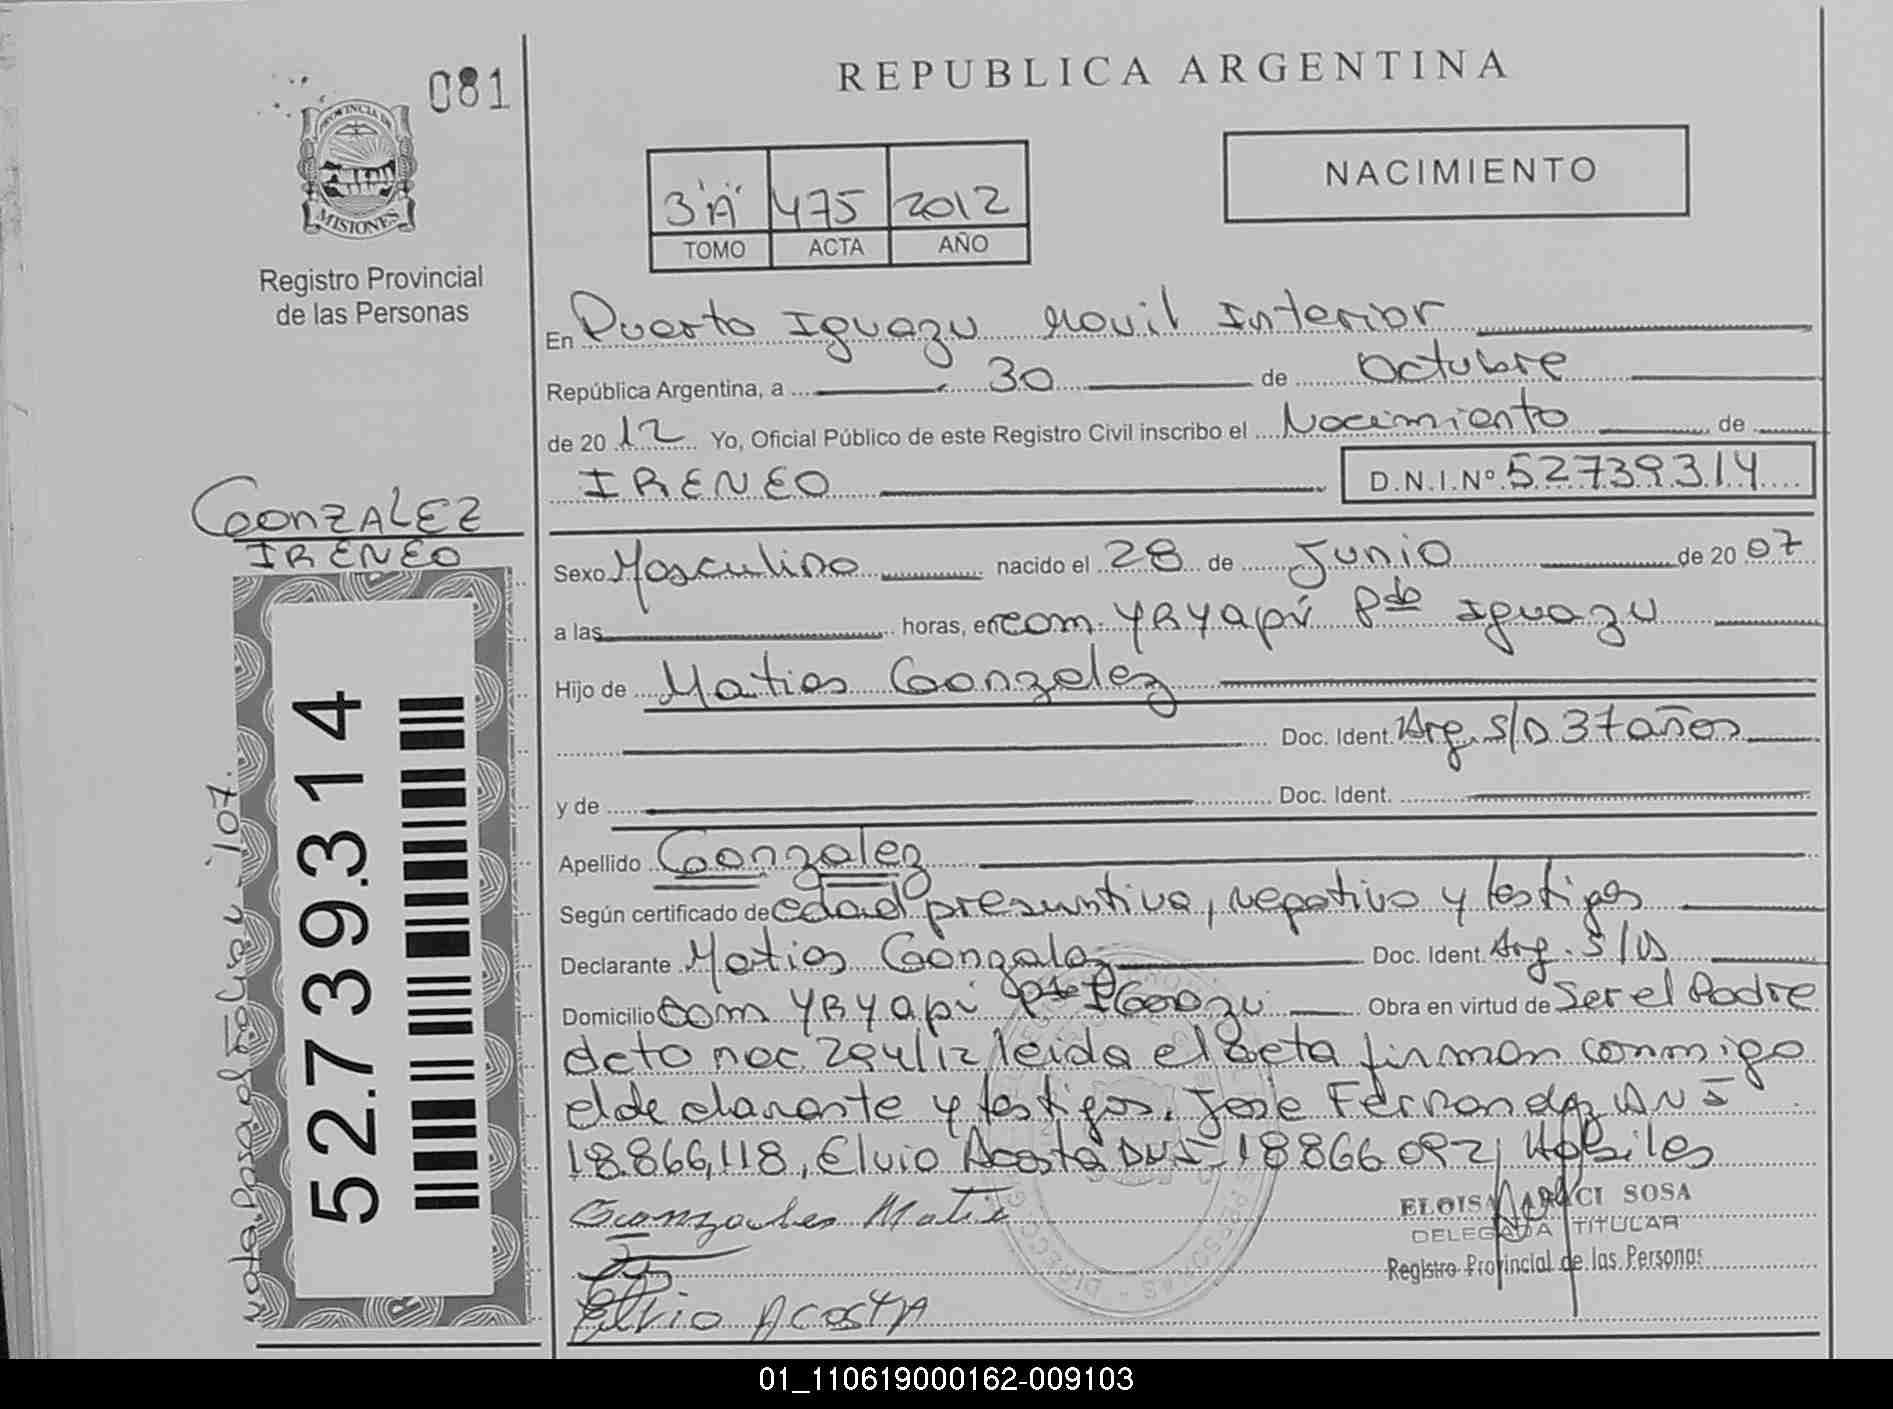 081
PROVINCIA DE
MISIONES
Registro Provincial
de las Personas
REPUBLICA ARGENTINA
3 "A" 475 2012
TOMO ACTA AÑO
NACIMIENTO
En Puerto Iguazu Movil Interior
República Argentina, a 30 de Octubre
de 20 12 Yo, Oficial Público de este Registro Civil inscribo el Nacimiento de
IRENEO D.N.I.Nº 52739314
GONZALEZ
IRENEO
Sexo Masculino nacido el 28 de Junio de 20 07
a las horas, en com. YRYapú Pdo Iguazu
Hijo de Matias Gonzalez
Doc. Ident. Arg. S/D 37 años
y de Doc. Ident.
Apellido Gonzalez
Según certificado de edad presuntiva, negativo y testigos
Declarante Matias Gonzalez Doc. Ident. Arg. S/D
Domicilio Com YRYapú Pto IGuazu Obra en virtud de Ser el Padre
dcto nac. 294/12 leida el acta firman conmigo
el declarante y testigos. Jose Fernandez DNI
18.866,118, Elvio Acosta DNI 18866 092, Habiles
Gonzales Mati
Elvio ACOSTA
ELOISA SOSA
DELEGADA TITULAR
Registro Provincial de las Personas
52.739.314
107.
01_110619000162-009103